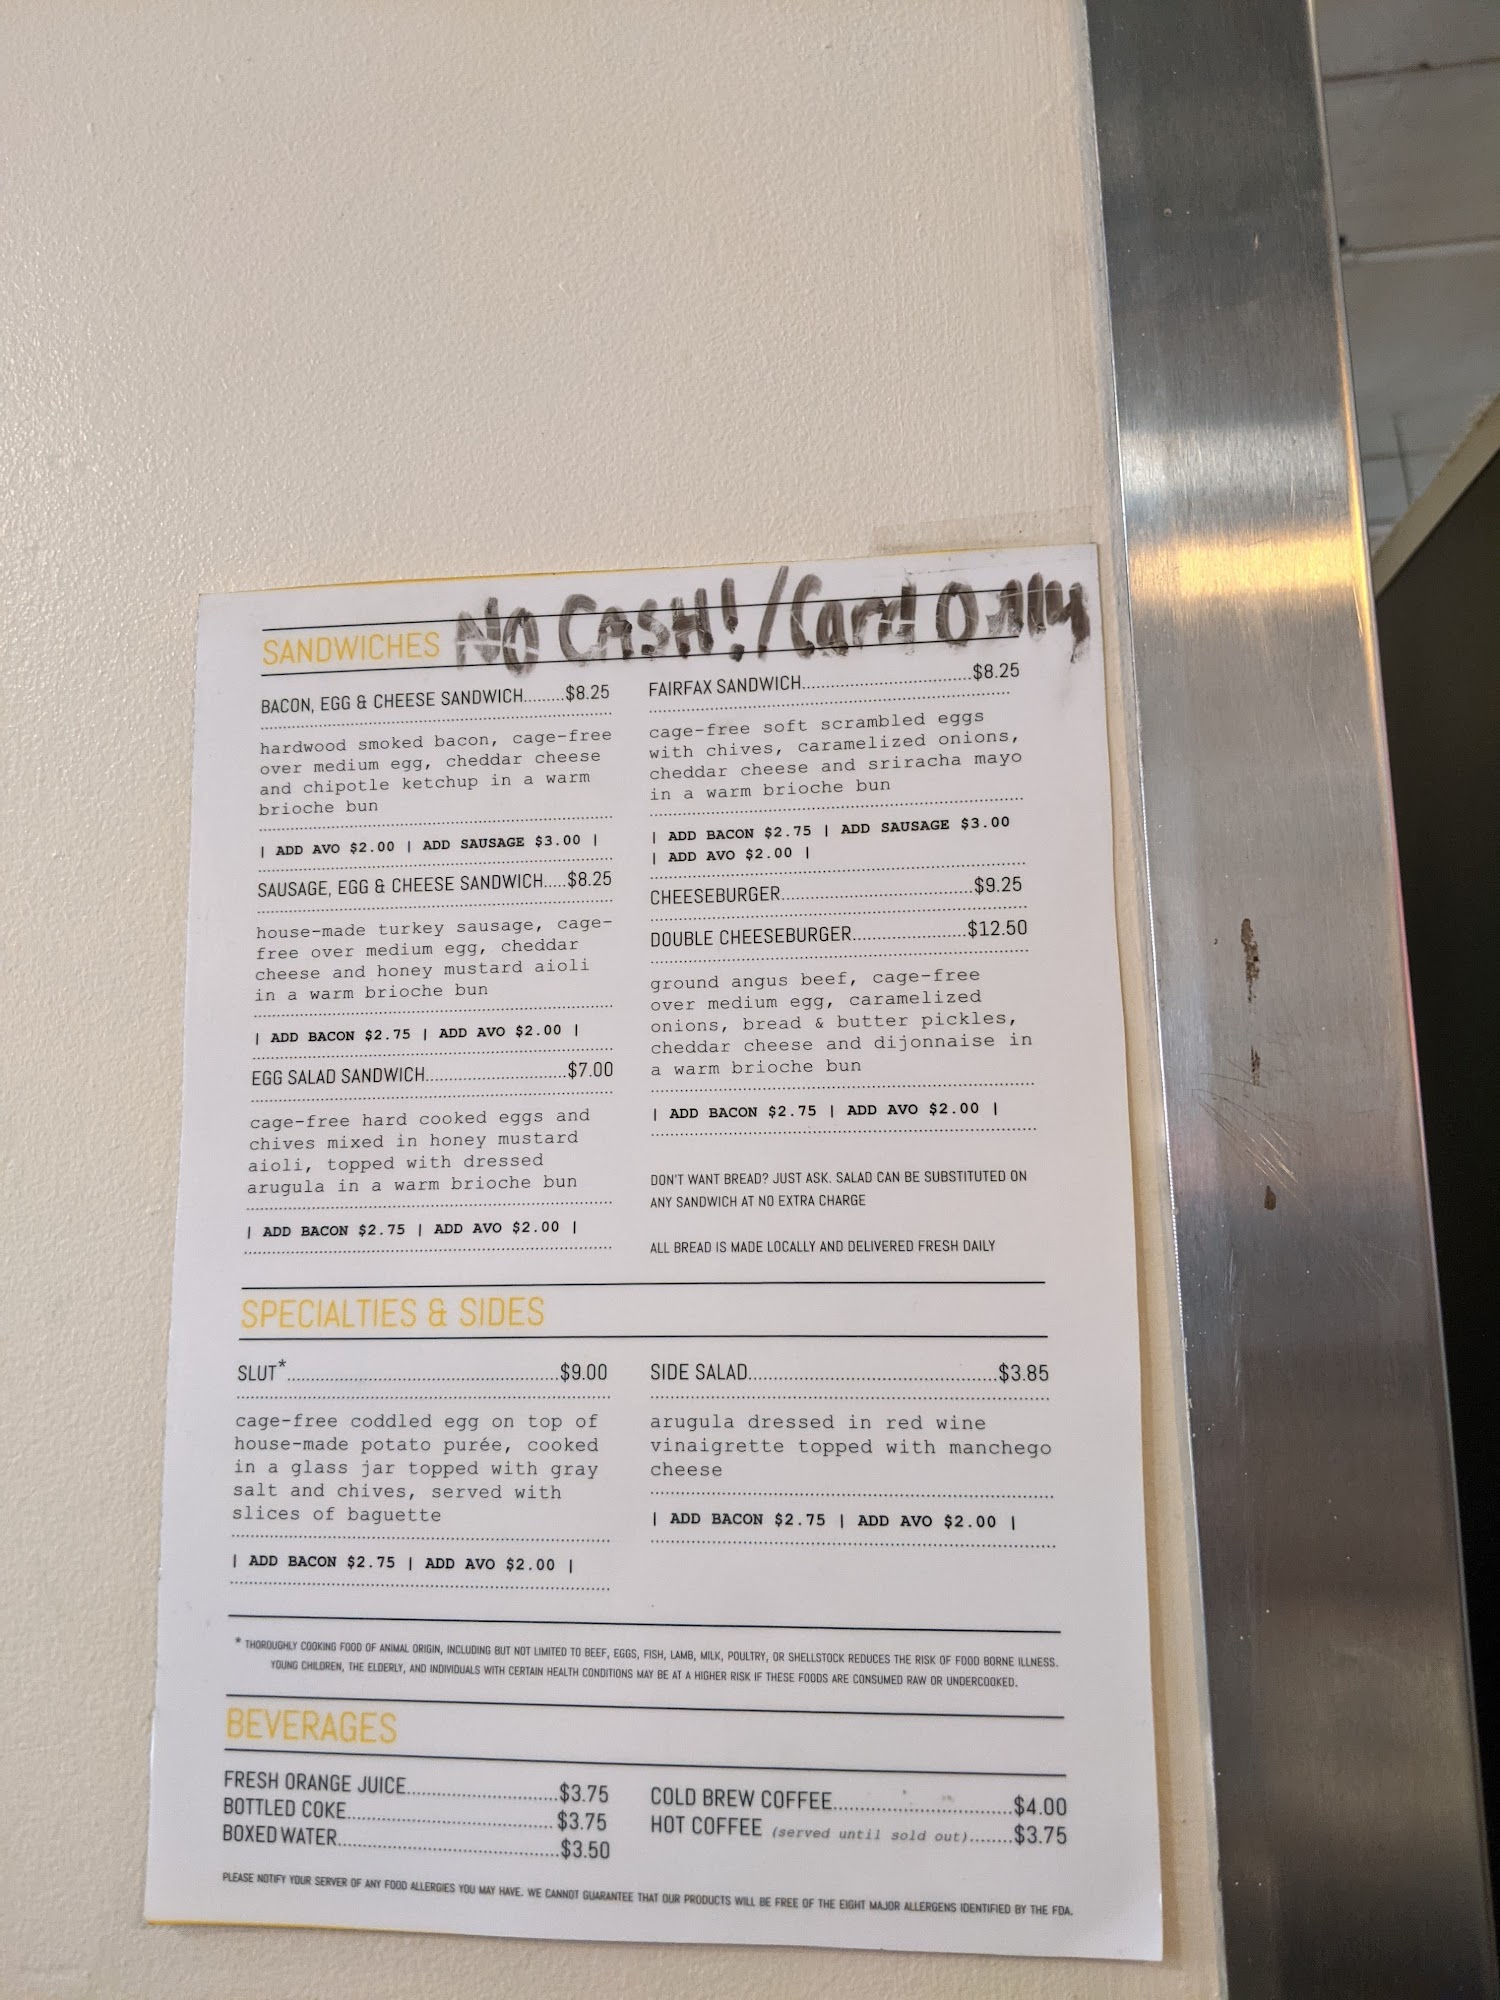 SANDWICHES NO CASH! / Card Only
BACON, EGG & CHEESE SANDWICH........$8.25
hardwood smoked bacon, cage-free
over medium egg, cheddar cheese
and chipotle ketchup in a warm
brioche bun
| ADD AVO $2.00 | ADD SAUSAGE $3.00 |
SAUSAGE, EGG & CHEESE SANDWICH.....$8.25
house-made turkey sausage, cage-
free over medium egg, cheddar
cheese and honey mustard aioli
in a warm brioche bun
| ADD BACON $2.75 | ADD AVO $2.00 |
EGG SALAD SANDWICH..............................$7.00
cage-free hard cooked eggs and
chives mixed in honey mustard
aioli, topped with dressed
arugula in a warm brioche bun
| ADD BACON $2.75 | ADD AVO $2.00 |
FAIRFAX SANDWICH....................................$8.25
cage-free soft scrambled eggs
with chives, caramelized onions,
cheddar cheese and sriracha mayo
in a warm brioche bun
| ADD BACON $2.75 | ADD SAUSAGE $3.00
| ADD AVO $2.00 |
CHEESEBURGER.........................................$9.25
DOUBLE CHEESEBURGER........................$12.50
ground angus beef, cage-free
over medium egg, caramelized
onions, bread & butter pickles,
cheddar cheese and dijonnaise in
a warm brioche bun
| ADD BACON $2.75 | ADD AVO $2.00 |
DON'T WANT BREAD? JUST ASK. SALAD CAN BE SUBSTITUTED ON
ANY SANDWICH AT NO EXTRA CHARGE
ALL BREAD IS MADE LOCALLY AND DELIVERED FRESH DAILY
SPECIALTIES & SIDES
SLUT*..........................................................$9.00
cage-free coddled egg on top of
house-made potato purée, cooked
in a glass jar topped with gray
salt and chives, served with
slices of baguette
| ADD BACON $2.75 | ADD AVO $2.00 |
SIDE SALAD.....................................................$3.85
arugula dressed in red wine
vinaigrette topped with manchego
cheese
| ADD BACON $2.75 | ADD AVO $2.00 |
* THOROUGHLY COOKING FOOD OF ANIMAL ORIGIN, INCLUDING BUT NOT LIMITED TO BEEF, EGGS, FISH, LAMB, MILK, POULTRY, OR SHELLSTOCK REDUCES THE RISK OF FOOD BORNE ILLNESS.
YOUNG CHILDREN, THE ELDERLY, AND INDIVIDUALS WITH CERTAIN HEALTH CONDITIONS MAY BE AT A HIGHER RISK IF THESE FOODS ARE CONSUMED RAW OR UNDERCOOKED.
BEVERAGES
FRESH ORANGE JUICE................................$3.75
BOTTLED COKE............................................$3.75
BOXED WATER...............................................$3.50
COLD BREW COFFEE......................................$4.00
HOT COFFEE (served until sold out)........$3.75
PLEASE NOTIFY YOUR SERVER OF ANY FOOD ALLERGIES YOU MAY HAVE. WE CANNOT GUARANTEE THAT OUR PRODUCTS WILL BE FREE OF THE EIGHT MAJOR ALLERGENS IDENTIFIED BY THE FDA.